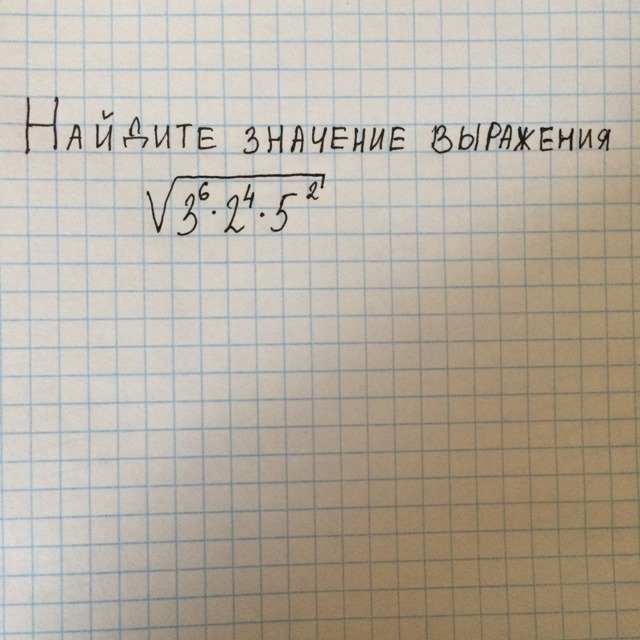 Найдите значение выражения
√3⁶·2⁴·5²